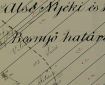 Alsó Nyéki és
Bosnyó határ